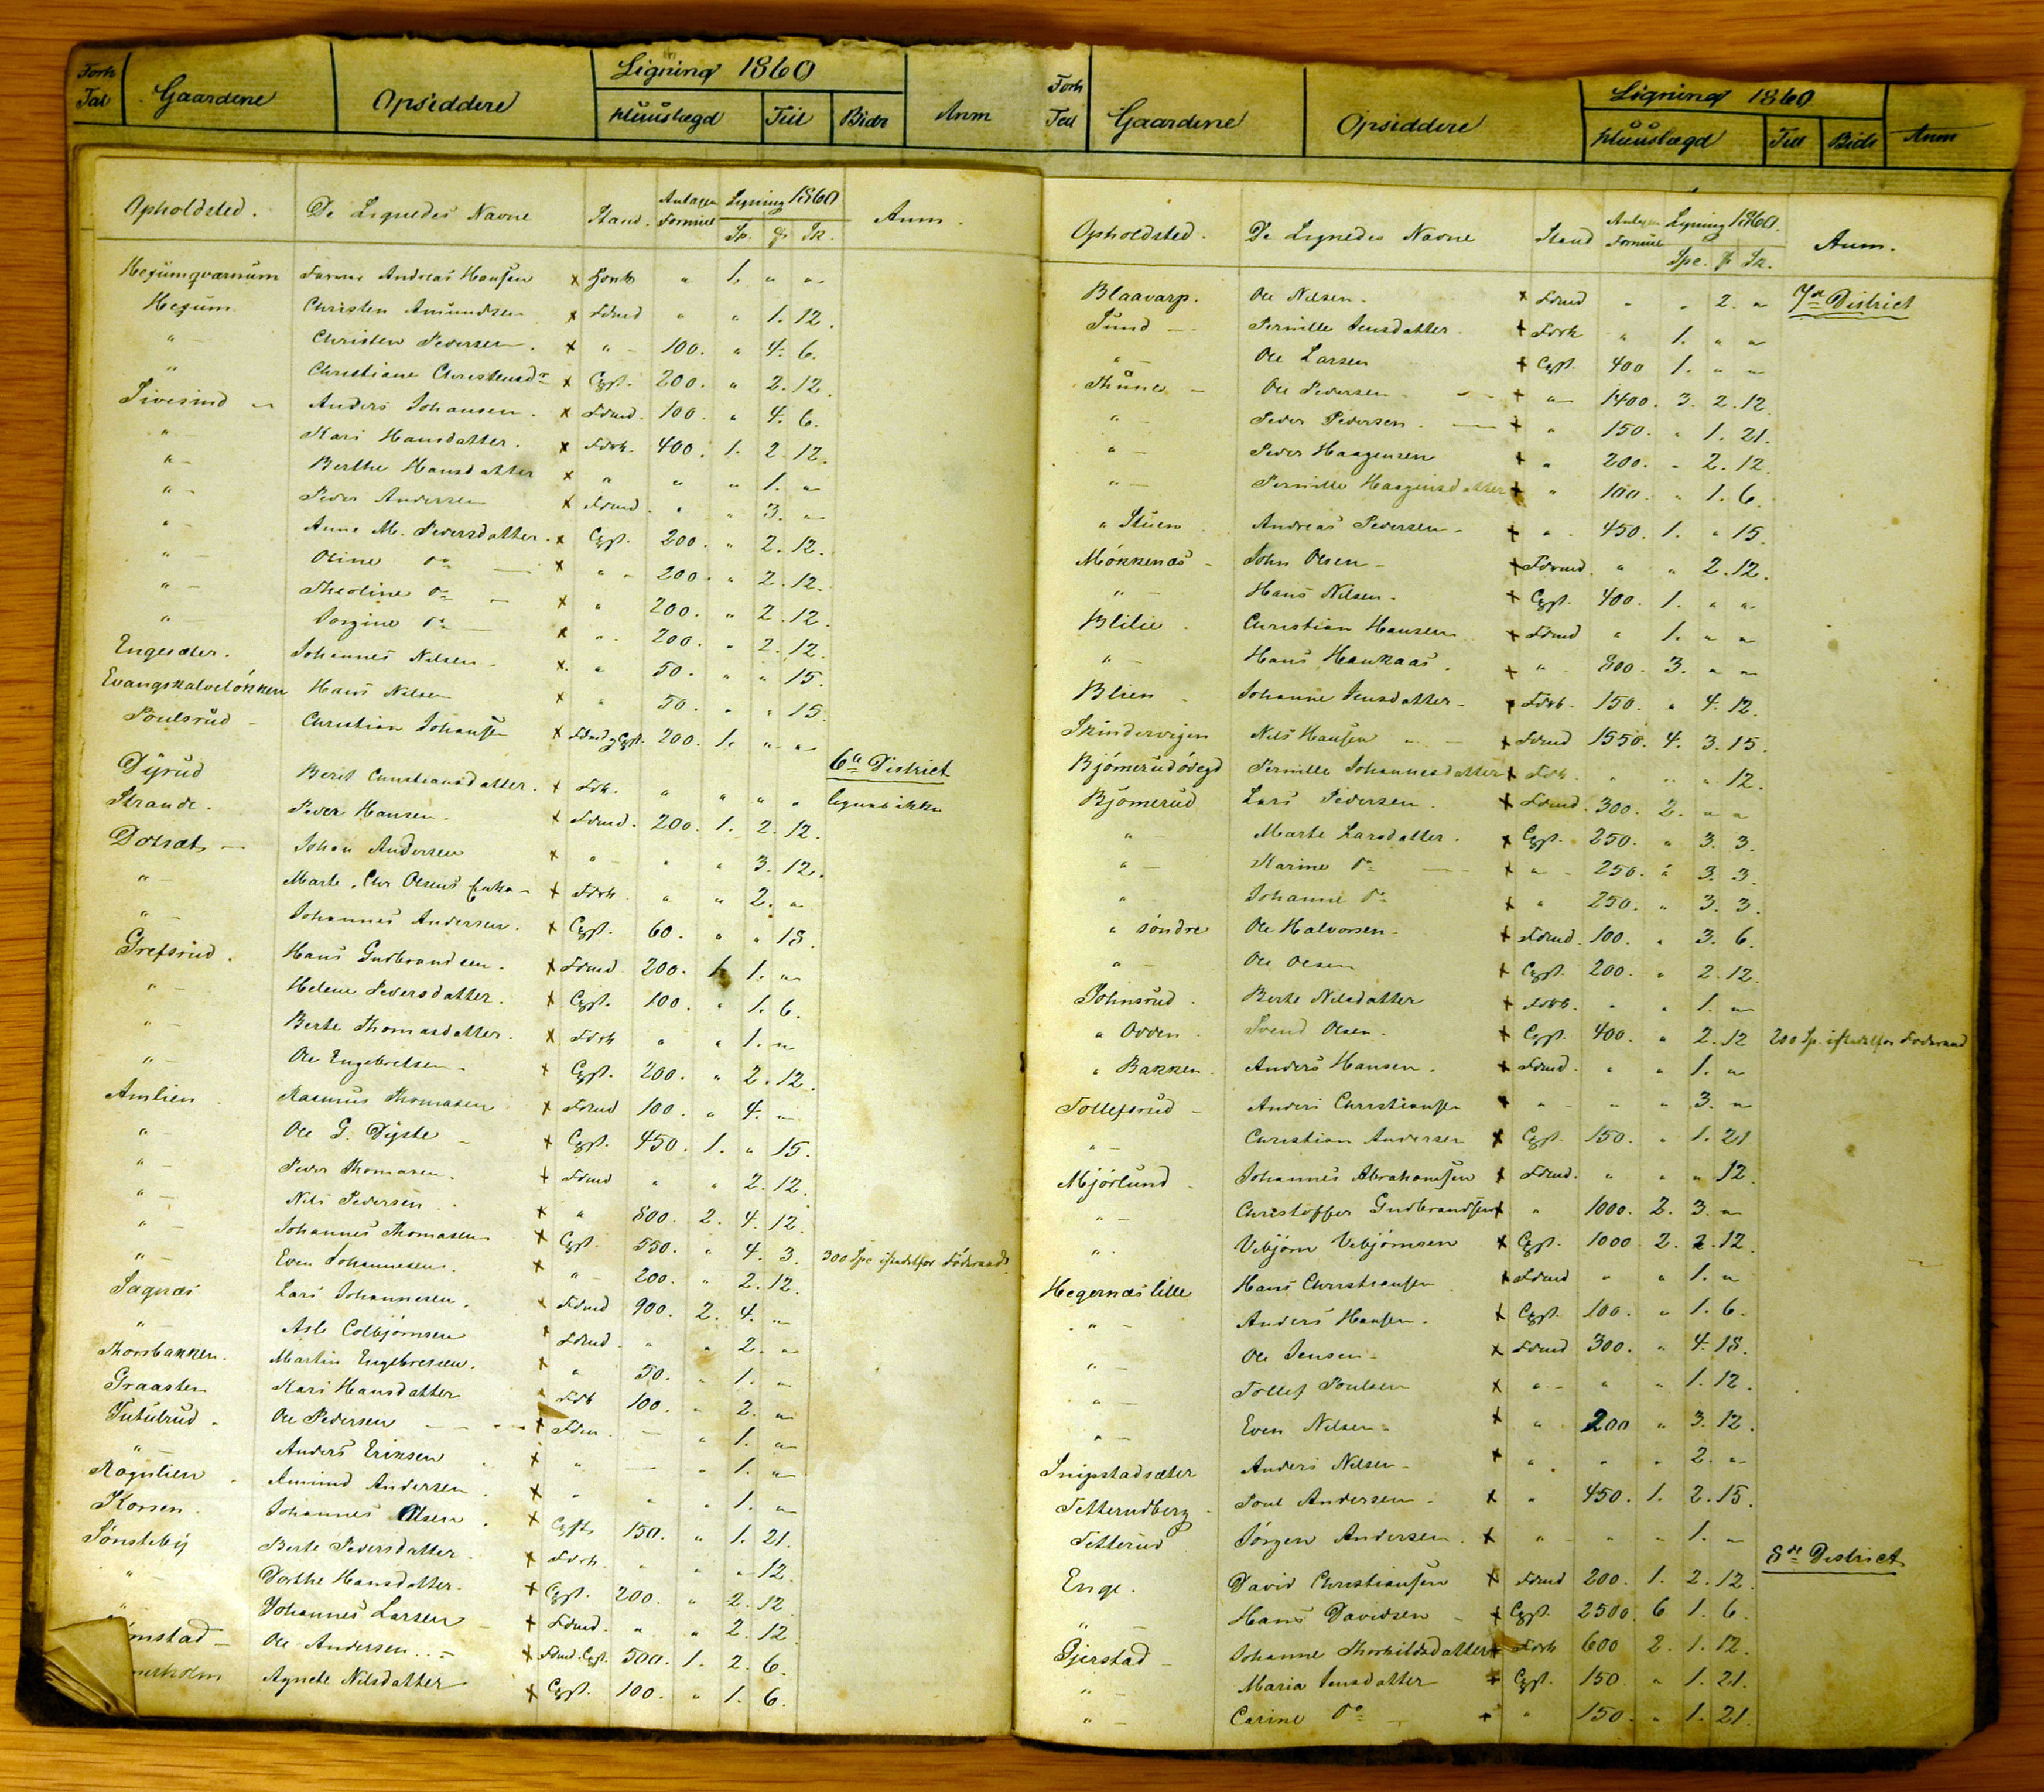 Forh Tal Gaardene Opsiddere Ligning 1860 Huuslægd Tiil Bidr Anm
Forh Tal Gaardene Opsiddere Ligning 1860 Huuslægd Tiil Bidr Anm
Opholdsted. De Lignedes Navne Stand. Antagen Formue Ligning 1860 Sp. ß Sk. Anm.
Hegumqværnum Andreas Hansen x " 1. " "
Hegum Christen Amundsen x Fdmd " " 1. 12.
" Christen Pedersen. x " 100. " 4. 6.
" Christiane Christensdr x Cgst. 200. " 2. 12.
Sivesind " Anders Johansen. x Fdmd. 100. " 4. 6.
" Kari Hansdatter. x Fdrk. 400. 1. 2. 12.
" Berthe Hansdatter x " " " 1. "
" Peder Andersen x Fdmd. " " 3. "
" Anne M. Pedersdatter. x Cgst. 200. " 2. 12.
" Oline do x " 200. " 2. 12.
" Theoline do x " 200. " 2. 12.
" Jorgine do x " 200. " 2. 12.
Engesæter. Johannes Nilsen x " 50. " " 15.
Evangskalveløkken Hans Nilsen x " 50. " " 15.
Poulsrud Christian Johansen x Fdmd, Cgst. 200. 1. " "
6te District
Dyrud Berit Christiansdatter. x Fdk. " " " " lignes ikke
Strande. Peder Hansen. x Fdmd. 200. 1. 2. 12.
Dotset Johan Andersen x " " " 3. 12.
" Marte, Chr. Olsens Enke x Fdrk " " 2. "
" Johannes Andersen. x Cgst. 60. " " 18.
Grefsrud. Hans Gudbrandsen. x Fdmd. 200. 1. "
" Helene Pedersdatter. x Cgst. 100. " 1. 6.
" Berte Thomasdatter. x Fdrk " " 1. "
" Ole Engebretsen x Cgst. 200. " 2. 12.
Amlien Rasmus Thomasen x Fdmd 100. " 4. "
" Ole G. Dyste x Cgst. 450. 1. " 15.
" Peder Thomasen. x Fdmd " " 2. 12.
" Nils Pedersen x " 800. 2. 4. 12.
" Johannes Thomasen x Cgst. 550. " 4. 3. 300 Spe istedetfor Føderaad.
" Even Johannesen. x " 200. " 2. 12.
Sagnæs Lars Johannesen. x Fdmd 900. 2. 4. "
" Asle Colbjørnsen x Fdmd. " " 2. "
Thorsbakken. Martin Engebretsen. x " 50. " 1. "
Graasten Kari Hansdatter Fdk 100. " 2. "
Tutulrud. Ole Pedersen x Fdm. " 1. "
" Anders Eriksen x " " 1. "
Rognlien Amund Andersen x " " " 1. "
Korsen. Johannes Olsen. x Cgst. 150. " 1. 21.
Sønsteby Berte Pedersdatter. x Fdrk. " " " 12.
" Dorthe Hansdatter. x Cgst. 200. " 2. 12.
" Johannes Larsen x Fdmd. " " 2. 12.
mstad Ole Andersen x Fdmd. Cgst. 500. 1. 2. 6.
erholm Agnete Nilsdatter x Cgst. 100. " 1. 6.
Opholdsted. De Lignedes Navne Stand Antagen Formue Ligning 1860. Spe. ß Sk. Anm.
Blaavarp. Ole Nilsen. x Fdmd " " 2. " 7de District
Sund Pernille Jensdatter. x Fdrk " 1. " "
" Ole Larsen x Cgst. 400 1. " "
Thune Ole Pedersen x " 1400. 3. 2. 12.
" Peder Pedersen. x " 150. " 1. 21.
" Peder Haagensen x " 200. " 2. 12.
" Pernille Haagensdatter x " 100. " 1. 6.
" Stuen Andreas Pedersen x " 450. 1. " 15.
Møkkenæs John Olsen x Fdmd. " " 2. 12.
" Hans Nilsen. x Cgst. 400. 1. " "
Blilie. Christian Hansen x Fdmd " 1. " "
" Hans Haukaas. x " 800. 3. " "
Blien Johanne Jensdatter x Fdrk. 150. " 4. 12.
Skindervigen Nils Hansen x Fdmd 1550. 4. 3. 15.
Bjørnerudødegd Pernille Johannesdatter x Fdk. " " " 12.
Bjørnerud Lars Pedersen. x Fdmd. 300. 2. " "
" Marte Larsdatter. x Cgst. 250. " 3. 3.
" Karine do x " 250. " 3. 3.
" Johanne do x " 250. " 3. 3.
" søndre Ole Halvorsen x Fdmd. 100. " 3. 6.
" Ole Olsen x Cgst. 200. " 2. 12.
Johnsrud. Berte Nilsdatter x Fdrk. " " 1. "
" Odden. Svend Olsen. x Cgst. 400. " 2. 12 200 Sp. istedetfor Føderaad
" Bakken. Anders Hansen. x Fdmd. " " 1. "
Tollefsrud Anders Christiansen x " " " 3. "
" Christian Andersen x Cgst. 150. " 1. 21
Mjørlund Johannes Abrahamsen x Fdmd. " " " 12.
" Christoffer Gudbrandsen x " 1000. 2. 3. "
" Vebjørn Vebjørnsen x Cgst. 1000. 2. 2. 12.
Hegernæs lille Hans Christiansen x Fdmd " " 1. "
" Anders Hansen. x Cgst. 100. " 1. 6.
" Ole Jensen x Fdmd 300. " 4. 18.
" Tollef Poulsen x " " " 1. 12.
" Even Nilsen x " 200 " 3. 12.
Snipstadsæter Anders Nilsen x " " " 2. "
Tetterudberg Poul Andersen x " 450. 1. 2. 15.
Tetterud Jørgen Andersen. x " " " 1. "
8de District
Enge. David Christiansen x Fdmd 200. 1. 2. 12.
" Hans Davidsen x Cgst. 2500. 6 1. 6.
Gjerstad Johanne Thorkildsdatter x Fdrk 600 2. 1. 12.
" Maria Jensdatter x Cgst. 150 " 1. 21.
" Carine do x " 150. " 1. 21.